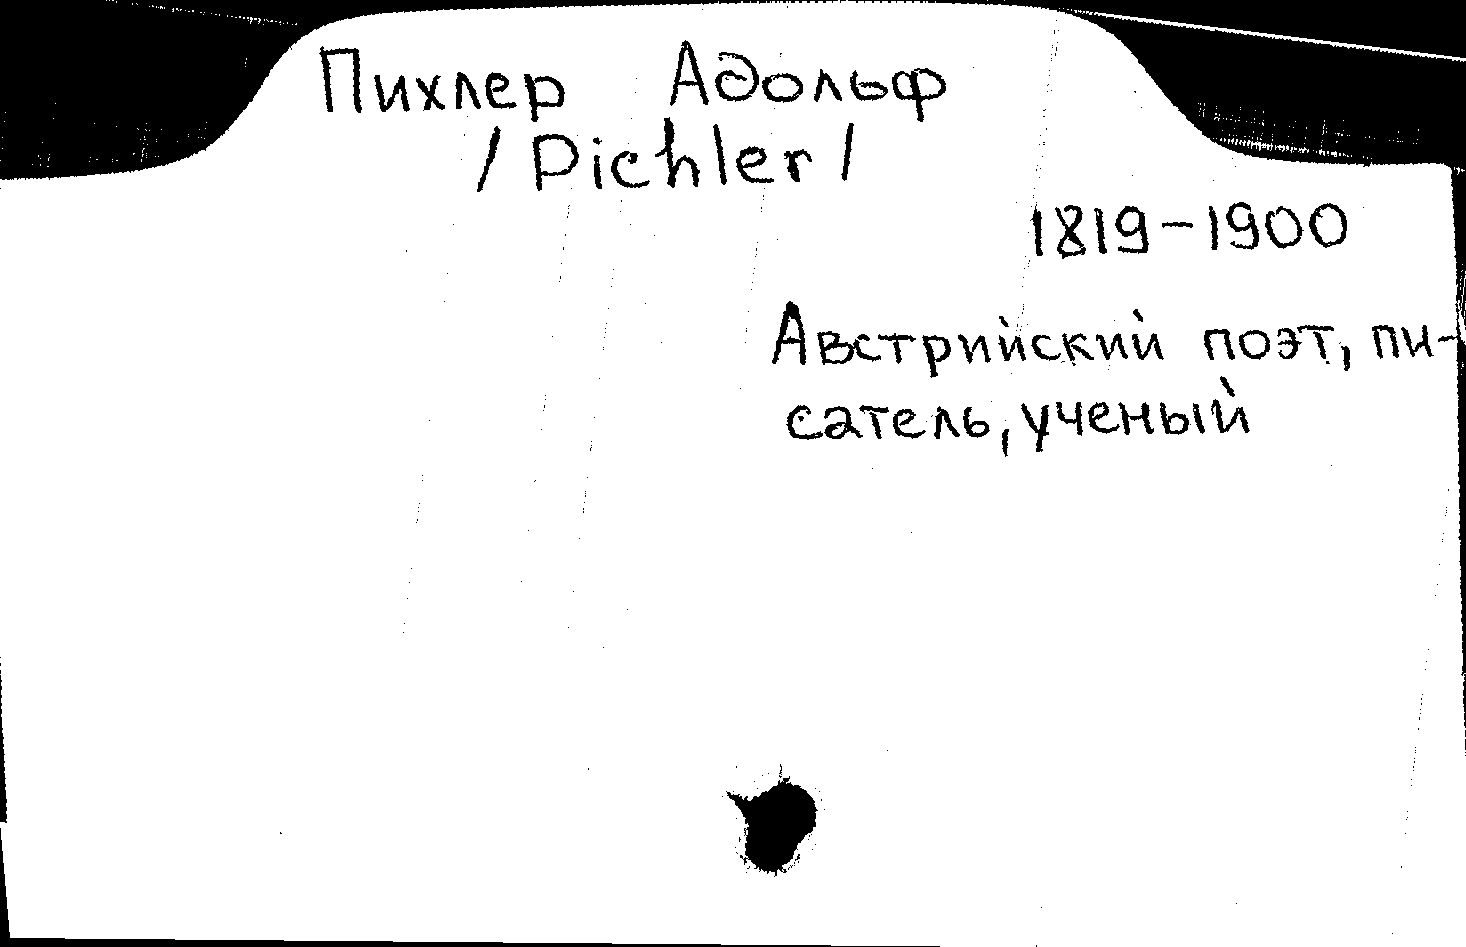 Пихлер Адольф
/Pichler/
1819-1900
Австрийский поэт, пи-
сатель, ученый